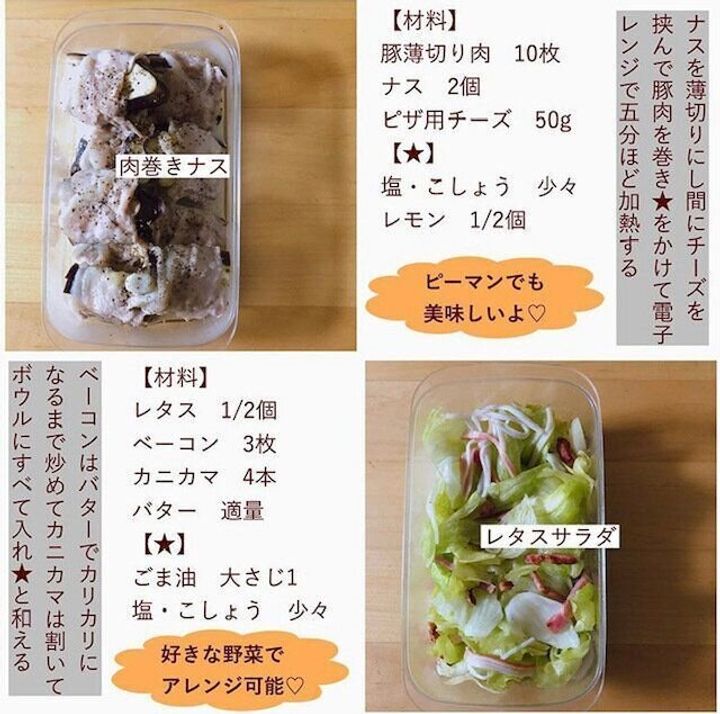 肉巻きナス
【材料】
豚薄切り肉　10枚
ナス　2個
ピザ用チーズ　50g
【★】
塩・こしょう　少々
レモン　1/2個
ピーマンでも
美味しいよ♡
ナスを薄切りにし間にチーズを
挟んで豚肉を巻き★をかけて電子
レンジで五分ほど加熱する
ベーコンはバターでカリカリに
なるまで炒めてカニカマは割いて
ボウルにすべて入れ★と和える
【材料】
レタス　1/2個
ベーコン　3枚
カニカマ　4本
バター　適量
【★】
ごま油　大さじ1
塩・こしょう　少々
好きな野菜で
アレンジ可能♡
レタスサラダ